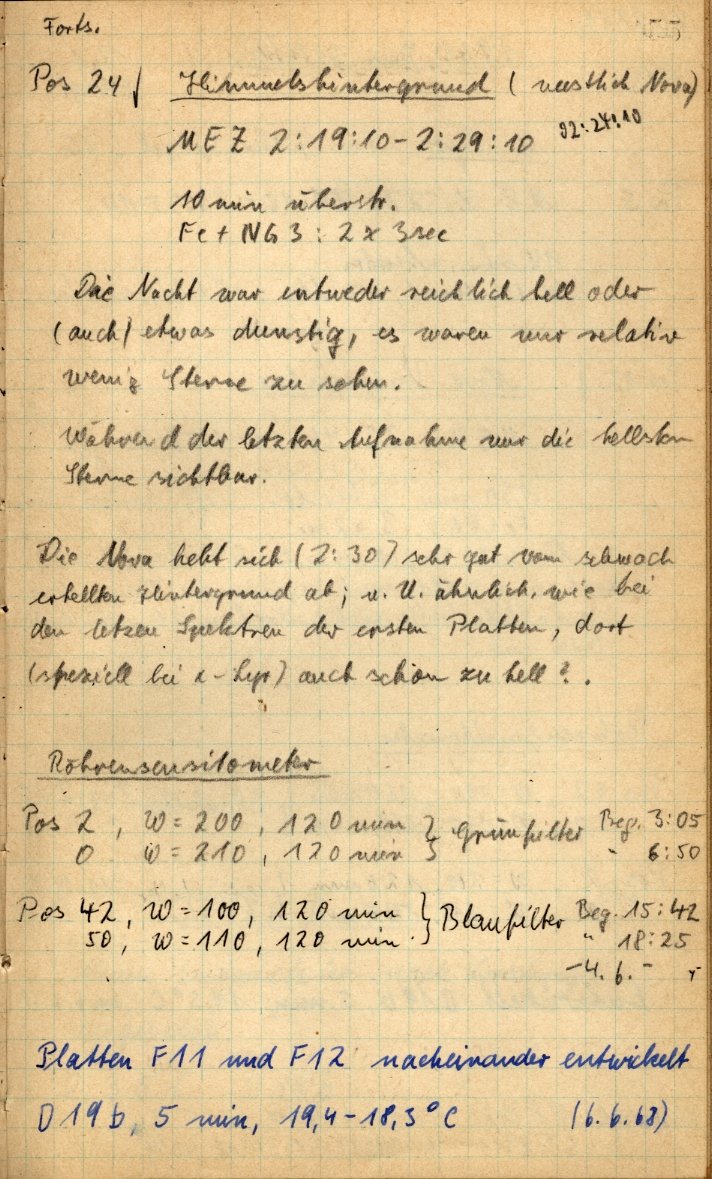 Forts.
Pos 24 Himmelshintergrund (westlich Nova)
MEZ 2:19:10-2:29:10 02:24:10
10 min überstr.
Fe + NG 3 : 2 x 3 sec
Die Nacht war entweder reichlich hell oder
(auch) etwas dunstig, es waren nur relativ
wenig Sterne zu sehen.
Während der letzten Aufnahme nur die hellsten
Sterne sichtbar.
Die Nova hebt sich (2:30) sehr gut vom schwach
erhellten Hintergrund ab; u. U. ähnlich, wie bei
den letzen Spektren der ersten Platten, dort
(speziell bei α-Lyr) auch schon zu hell?.
Röhrensensitometer
Pos 2, W = 200, 120 min } Grünfilter Beg. 3:05
0 W = 210, 120 min } " 6:50
Pos 42, W = 100, 120 min } Blaufilter Beg. 15:42
50, W = 110, 120 min } " 18:25
-4.6.-
Platten F11 und F12 nacheinander entwickelt
D19b, 5 min, 19,4-18,3°C (6.6.68)